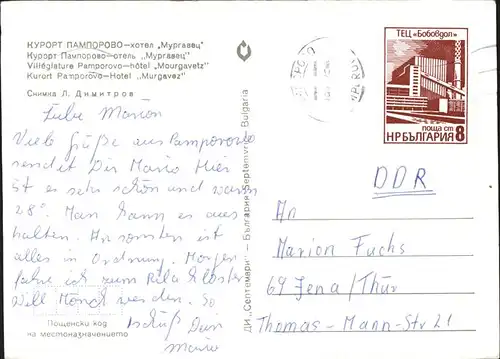 КУРОРТ ПАМПОРОВО—хотел „Мургавец"
Курорт Пампорово—отель „Мургавец"
Villégiature Pamporovo—hôtel „Mourgavetz"
Kurort Pamporovo—Hotel „Murgavez"
Снимка Л. Димитров
Liebe Marion
Viele Grüße aus Pamporovo
sendet Dir Mario Hier
ist es sehr schön und warm
28°. Man kann es aus
halten. Ansonsten ist
alles in Ordnung. Morgen
fahre ich zum Rila Kloster
Will Mönch werden. So
tschüß Dein
Mario
Пощенски код
на местоназначението
ДИ „Септември" — България Septemvri, Bulgaria
ТЕЦ «Бобовдол»
поща ст 8
НРБЪЛГАРИЯ
DDR
An
Marion Fuchs
69 Jena/Thür
Thomas-Mann-Str 21